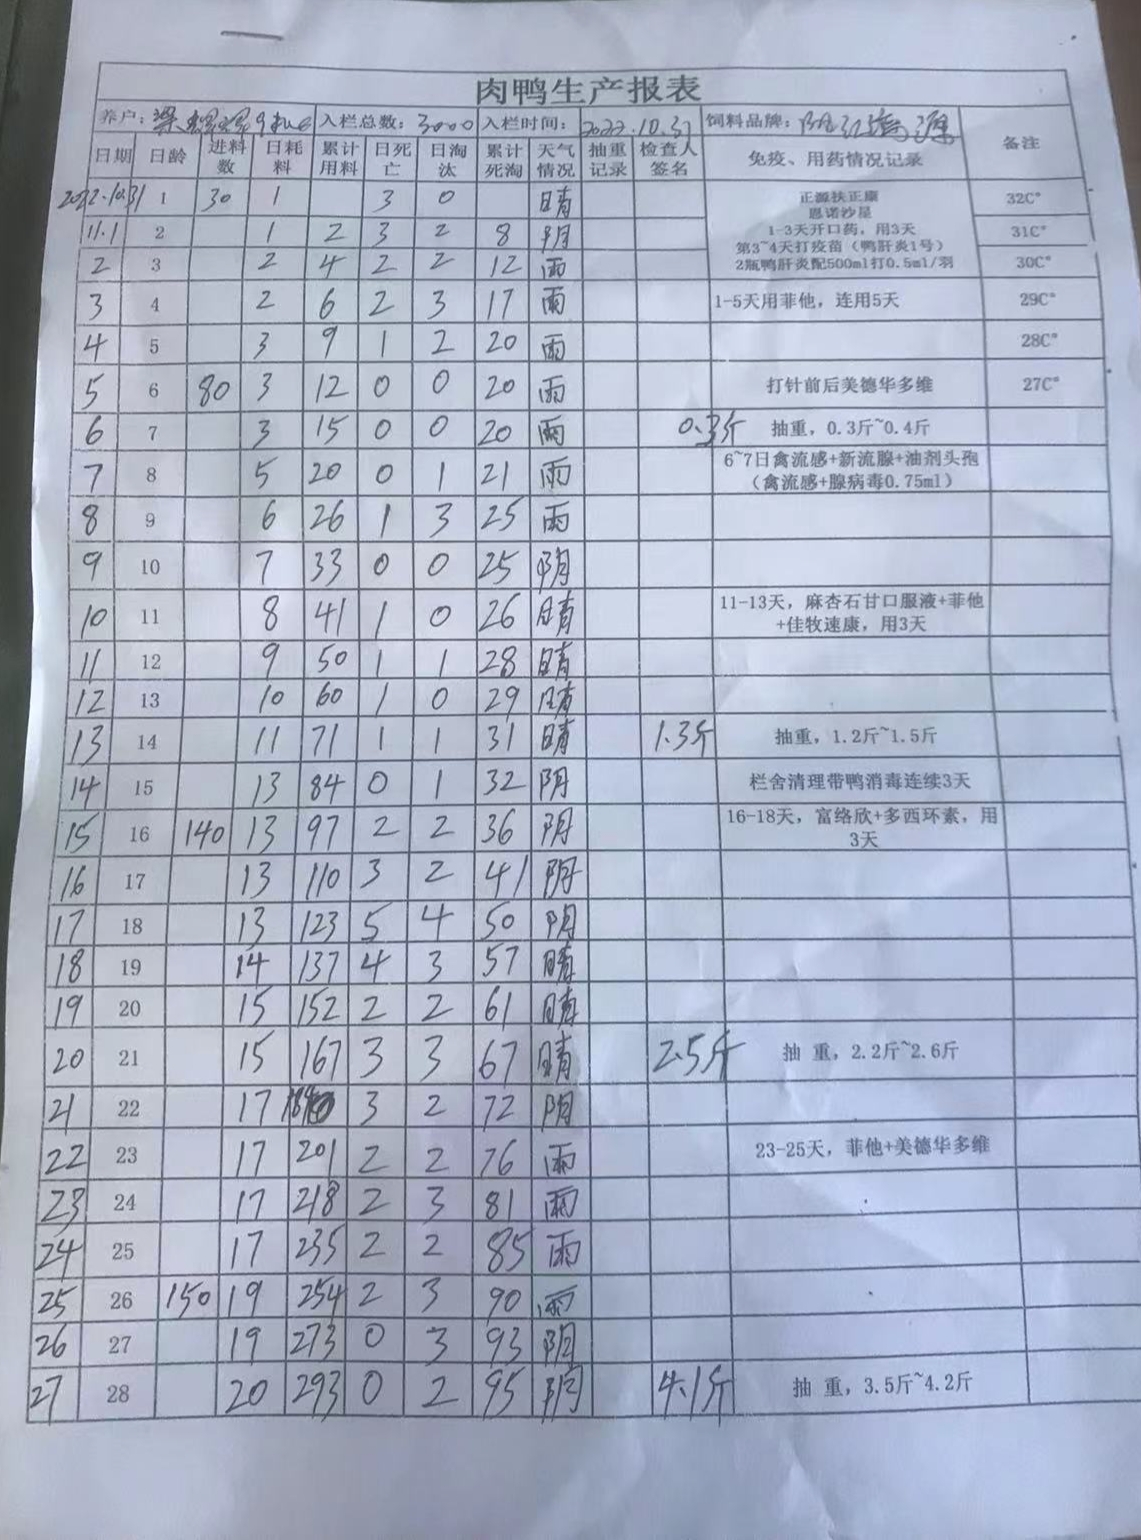 肉鸭生产报表
养户: 入栏总数: 3000 入栏时间: 2022.10.31 饲料品牌: 备注
日期 日龄 进料数 日耗料 累计用料 日死亡 日淘汰 累计死淘 天气情况 抽重记录 检查人签名 免疫、用药情况记录
2022.10.31 1 30 1 3 0 晴 正源扶正康 32C°
恩诺沙星
11.1 2 1 2 3 2 8 阴 1-3天开口药，用3天 31C°
第3~4天打疫苗（鸭肝炎1号）
2 3 2 4 2 2 12 雨 2瓶鸭肝炎配500ml打0.5ml/羽 30C°
3 4 2 6 2 3 17 雨 1-5天用菲他，连用5天 29C°
4 5 3 9 1 2 20 雨 28C°
5 6 80 3 12 0 0 20 雨 打针前后美德华多维 27C°
6 7 3 15 0 0 20 雨 0.3斤 抽重，0.3斤~0.4斤
7 8 5 20 0 1 21 雨 6~7日禽流感+新流腺+油剂头孢
（禽流感+腺病毒0.75ml）
8 9 6 26 1 3 25 雨
9 10 7 33 0 0 25 阴
10 11 8 41 1 0 26 晴 11-13天，麻杏石甘口服液+菲他
+佳牧速康，用3天
11 12 9 50 1 1 28 晴
12 13 10 60 1 0 29 晴
13 14 11 71 1 1 31 晴 1.3斤 抽重，1.2斤~1.5斤
14 15 13 84 0 1 32 阴 栏舍清理带鸭消毒连续3天
15 16 140 13 97 2 2 36 阴 16-18天，富络欣+多西环素，用
3天
16 17 13 110 3 2 41 阴
17 18 13 123 5 4 50 阴
18 19 14 137 4 3 57 晴
19 20 15 152 2 2 61 晴
20 21 15 167 3 3 67 晴 2.5斤 抽 重，2.2斤~2.6斤
21 22 17 184 3 2 72 阴
22 23 17 201 2 2 76 雨 23-25天，菲他+美德华多维
23 24 17 218 2 3 81 雨
24 25 17 235 2 2 85 雨
25 26 150 19 254 2 3 90 雨
26 27 19 273 0 3 93 阴
27 28 20 293 0 2 95 阴 4.1斤 抽 重，3.5斤~4.2斤